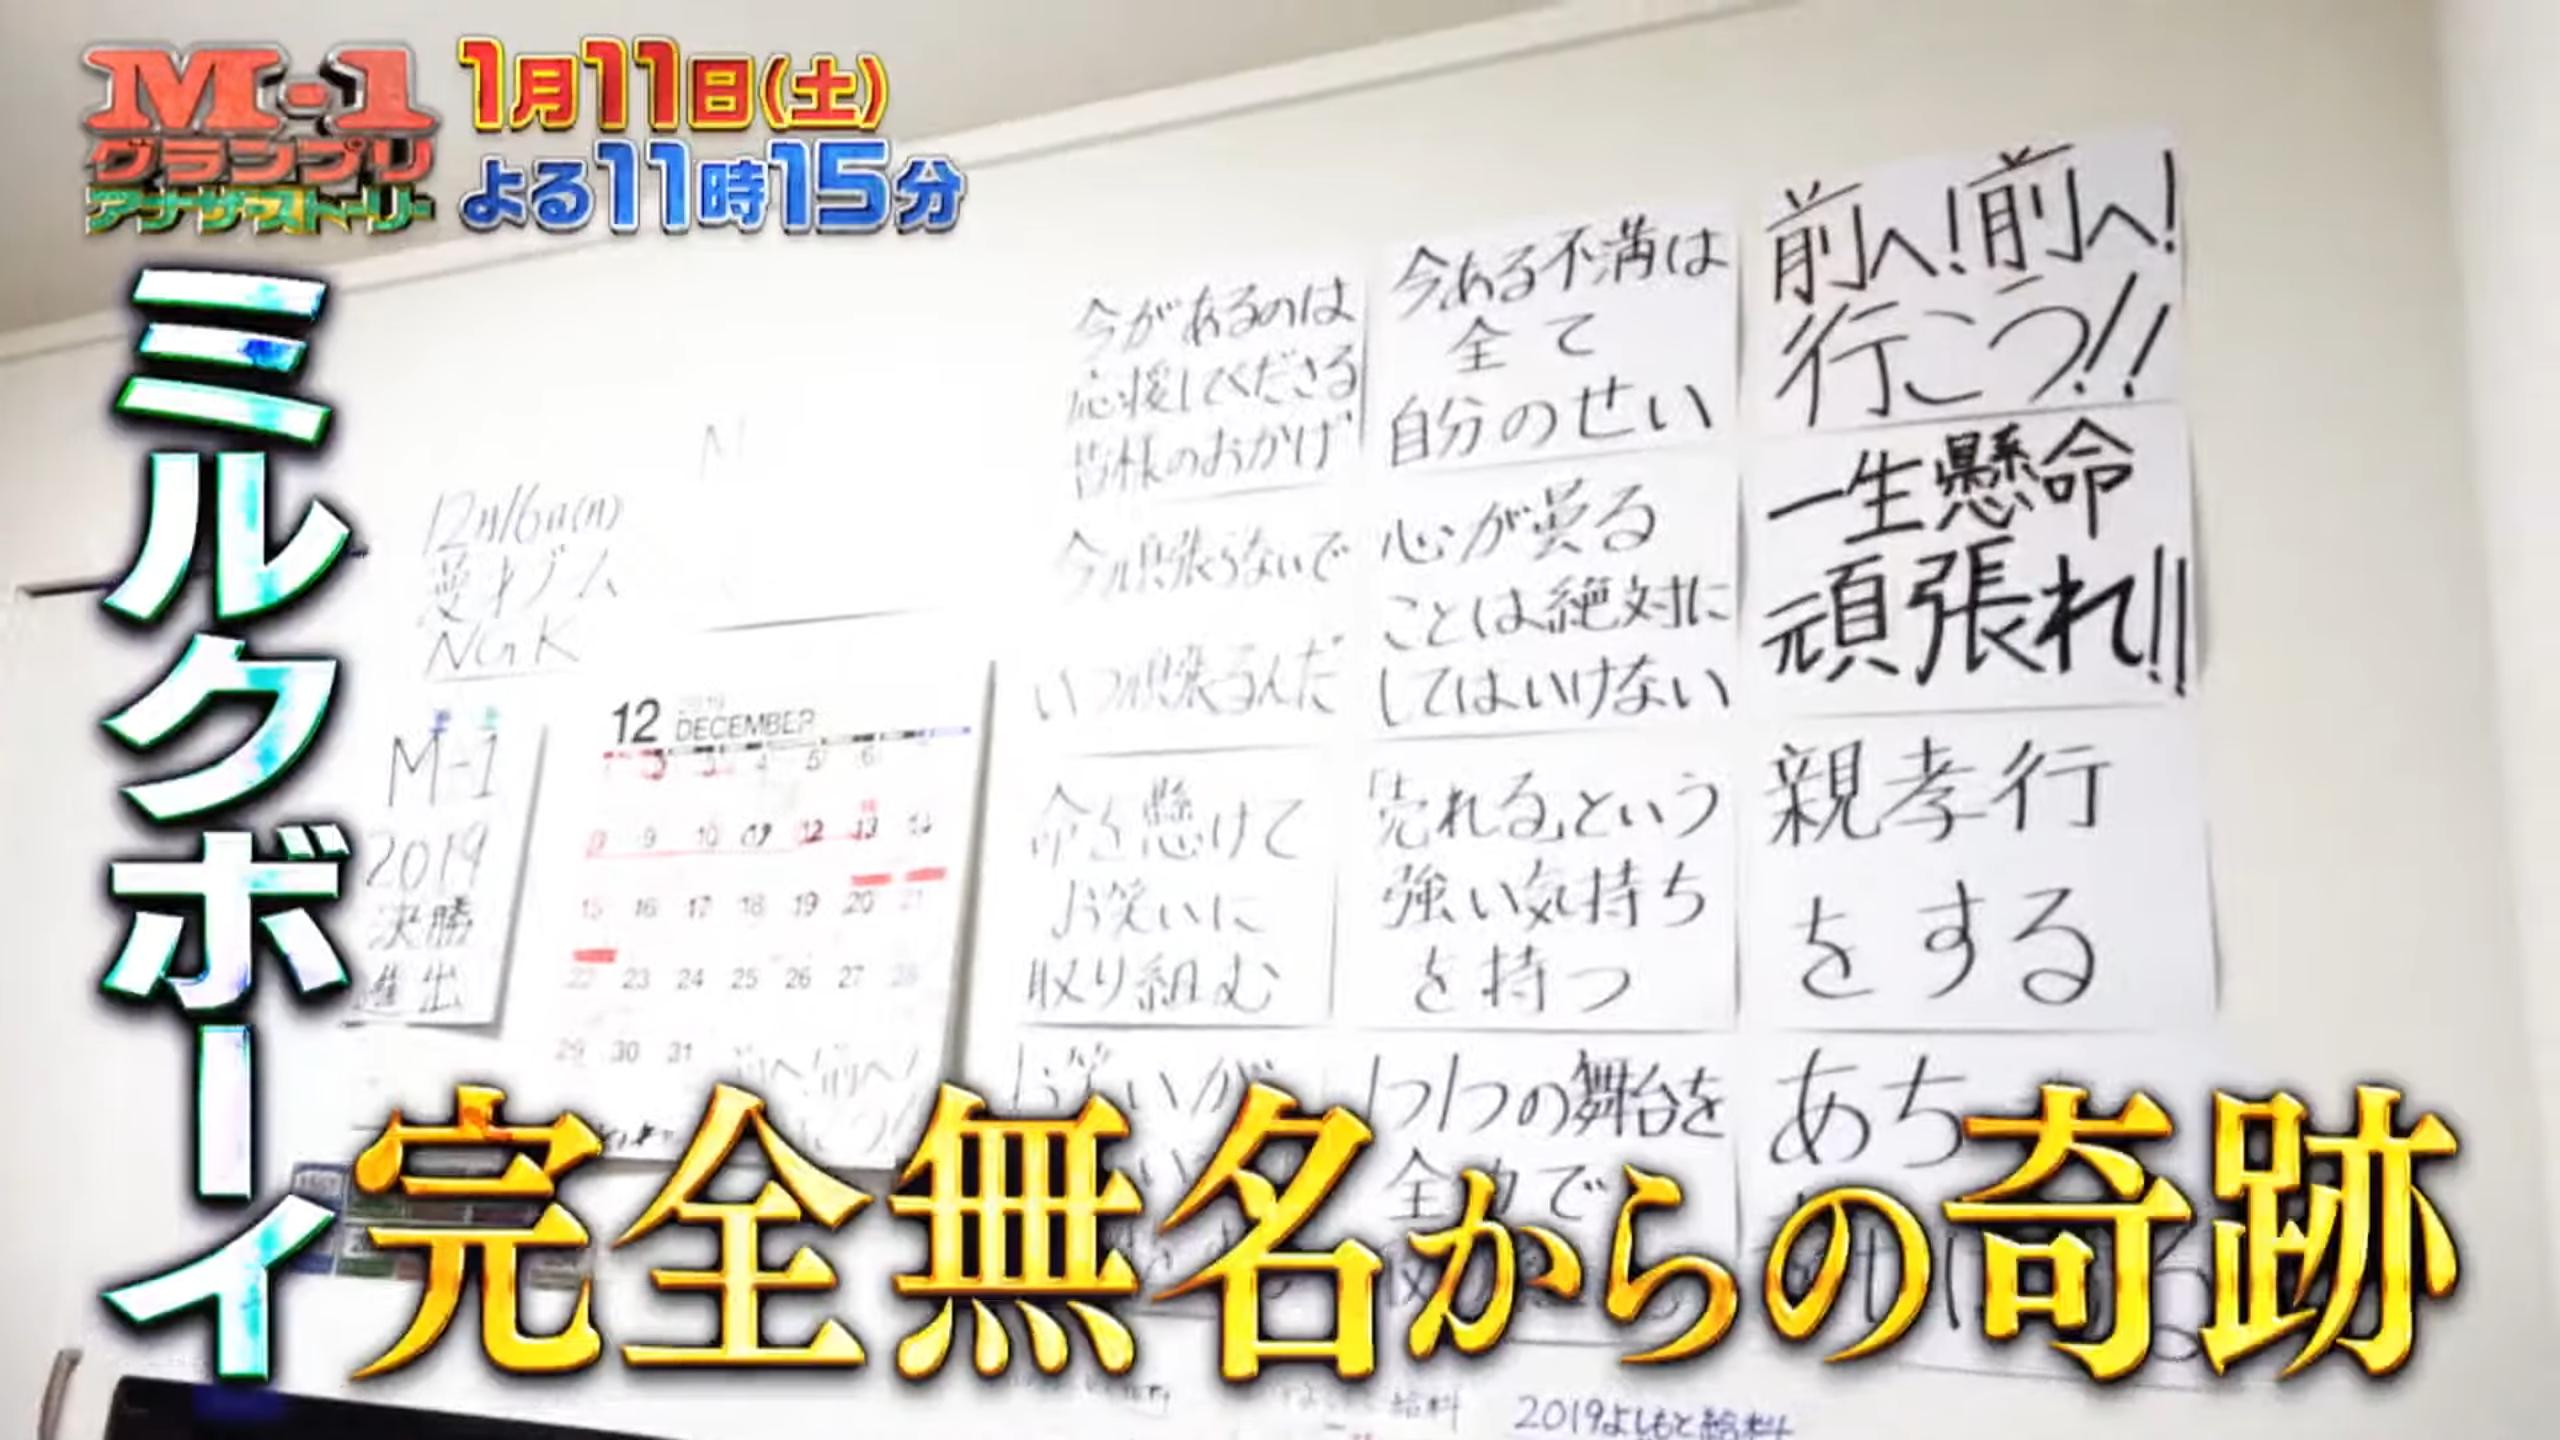 M-1
グランプリ
アナザーストーリー
1月11日(土)
よる11時15分
ミルクボーイ
前へ!前へ!
行こう!!
今ある不満は
全て
自分のせい
今があるのは
応援してくださる
皆様のおかげ
一生懸命
頑張れ!!
心が曇る
ことは絶対に
してはいけない
今頑張らないで
いつ頑張るんだ
12月16日(月)
漫才ブーム
NGK
M-1
2019
決勝
進出
12 2019
DECEMBER
5 6
9 10 12 13 14
15 16 17 18 19 20 21
22 23 24 25 26 27 28
29 30 31
前へ!前へ!
親孝行
をする
「売れる」という
強い気持ち
を持つ
命を懸けて
お笑いに
取り組む
お笑いが
1つ1つの舞台を
全力で
完全無名からの奇跡
給料
2019よしもと給料